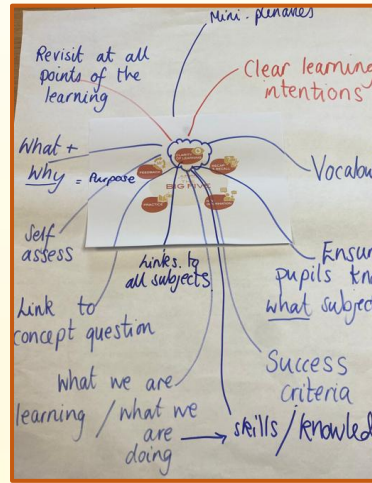 Mini-plenaries
Revisit at all
points of the
learning
Clear learning
intentions
What +
Why = Purpose
Vocabu
BIG FIVE
FEEDBACK
PRACTICE
Self
assess
Links to
all subjects
Ensur
pupils kn
what subjec
Link to
concept question
What we are
learning / what we
are
doing
Success
criteria
skills / knowled